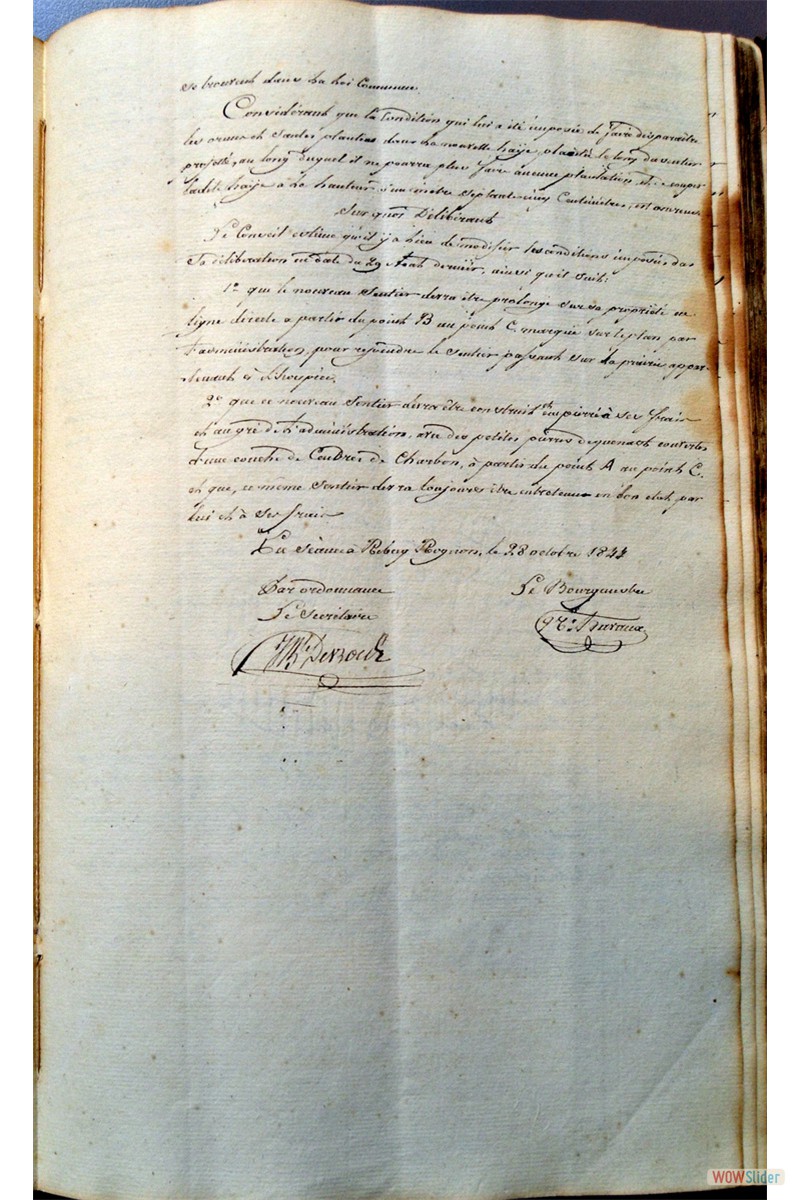 se trouvent dans la loi Communale
Considérant que la Condition qui lui a été imposée de faire disparaitre
les ormes et saules plantées dans la nouvelle haije plantée le long du sentier
projetté, au long duquel il ne pourra plus faire aucune plantation et de couper
ladite haije à la hauteur d'un mètre septante cinq Centimètres, est onéreuse
Sur quoi Délibérant
Le Conseil estime qu'il y a lieu de modifier les conditions imposées dans
Sa délibération en date du 29 Août dernier, ainsi qu'il suit:
1° que le nouveau Sentier devra être prolongé sur sa propriété en
ligne directe a partir du point B au point C. marqué sur le plan par
l'administration, pour rejoindre le Sentier passant sur la prairie appar-
tenant à l'hospice.
2° que ce nouveau Sentier devra être construit et empierré à ses frais
et au gré de l'administration, avec des petites pierres de quenast couvertes
d'une couche de Cendrée de Charbon, à partir du point A au point C.
et que, ce même Sentier devra toujours être entretenu en bon etat par
lui et à ses frais
En Séance à Rebecq Rognon, le 28 octobre 1844
Par ordonnance Le Bourgmestre
Le Secrétaire
WOWSlider